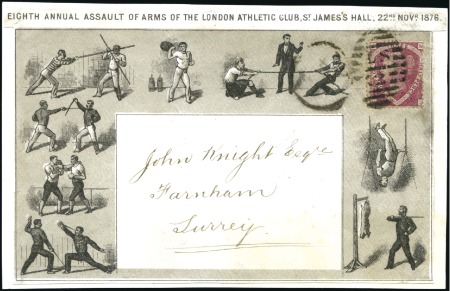 EIGHTH ANNUAL ASSAULT OF ARMS OF THE LONDON ATHLETIC CLUB, ST JAMES'S HALL, 22ND NOVR 1876.
John Knight Esqre
Farnham
Surrey